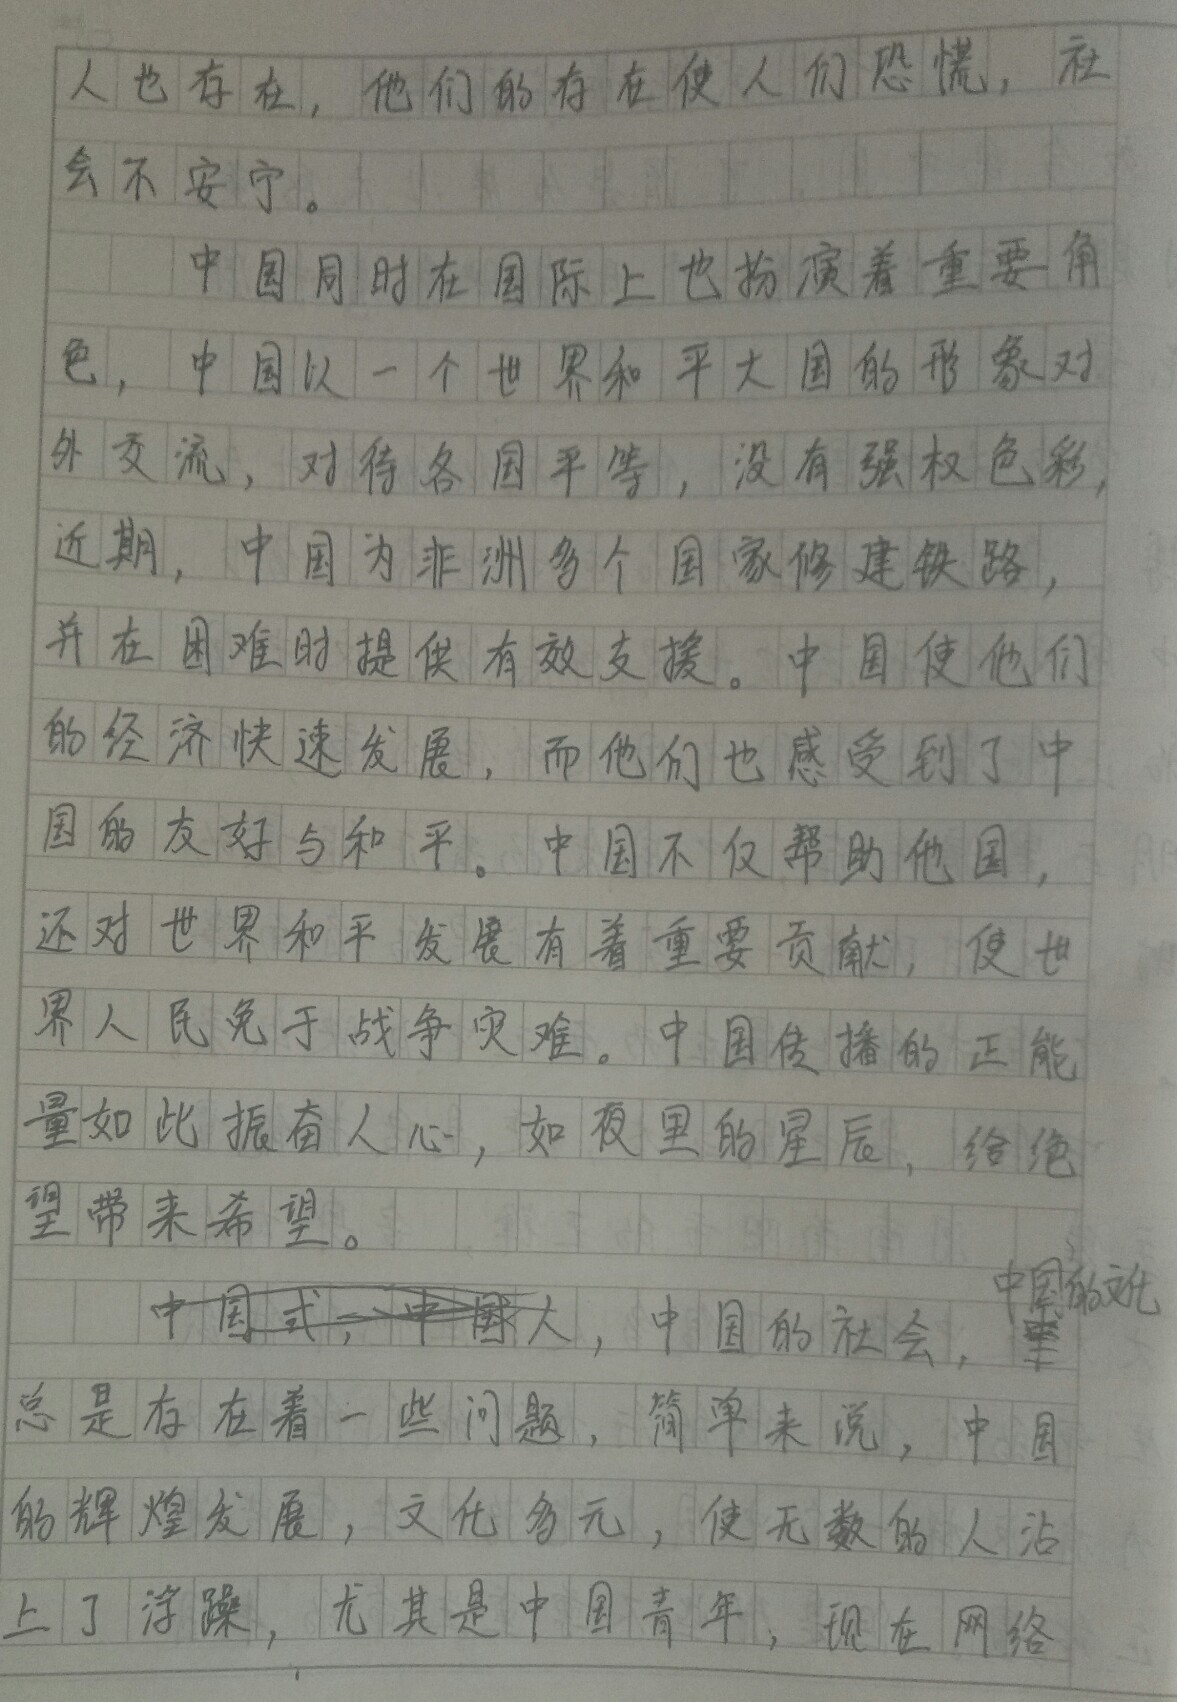 人也存在，他们的存在使人们恐慌，社
会不安宁。
中国同时在国际上也扮演着重要角
色，中国以一个世界和平大国的形象对
外交流，对待各国平等，没有强权色彩，
近期，中国为非洲多个国家修建铁路，
并在困难时提供有效支援。中国使他们
的经济快速发展，而他们也感受到了中
国的友好与和平。中国不仅帮助他国，
还对世界和平发展有着重要贡献，使世
界人民免于战争灾难。中国传播的正能
量如此振奋人心，如夜里的星辰，给绝
望带来希望。
中国式，中国人，中国的社会，中国的文化
总是存在着一些问题，简单来说，中国
的辉煌发展，文化多元，使无数的人沾
上了浮躁，尤其是中国青年，现在网络